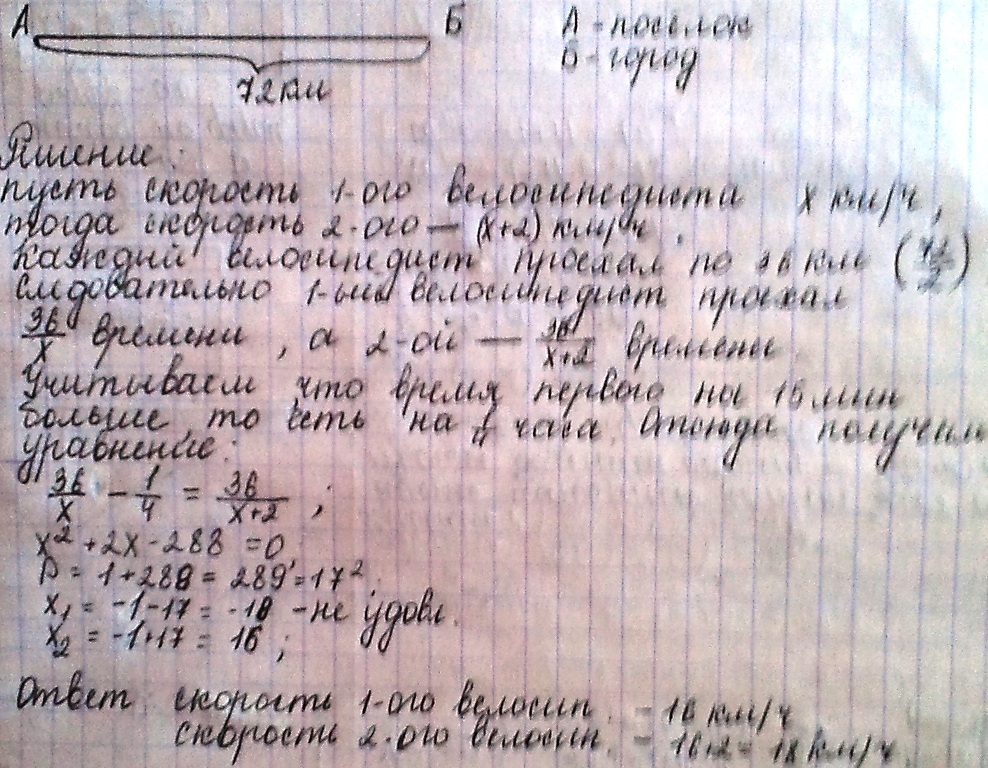 А Б А - поселок
72 км Б - город
Решение:
пусть скорость 1-ого велосипедиста х км/ч,
тогда скорость 2-ого — (х+2) км/ч.
Каждый велосипедист проехал по 36 км (72/2)
следовательно 1-ый велосипедист проехал
36/х времени, а 2-ой — 36/х+2 времени.
Учитываем что время первого на 15 мин
больше, то есть на 1/4 часа. Отсюда получим
уравнение:
36/х - 1/4 = 36/х+2 ;
х² + 2х - 288 = 0
D = 1+288 = 289 = 17²
х₁ = -1-17 = -18 - не удовл.
х₂ = -1+17 = 16 ;
Ответ: скорость 1-ого велосип. - 16 км/ч
скорость 2-ого велосип. - 16+2 = 18 км/ч.